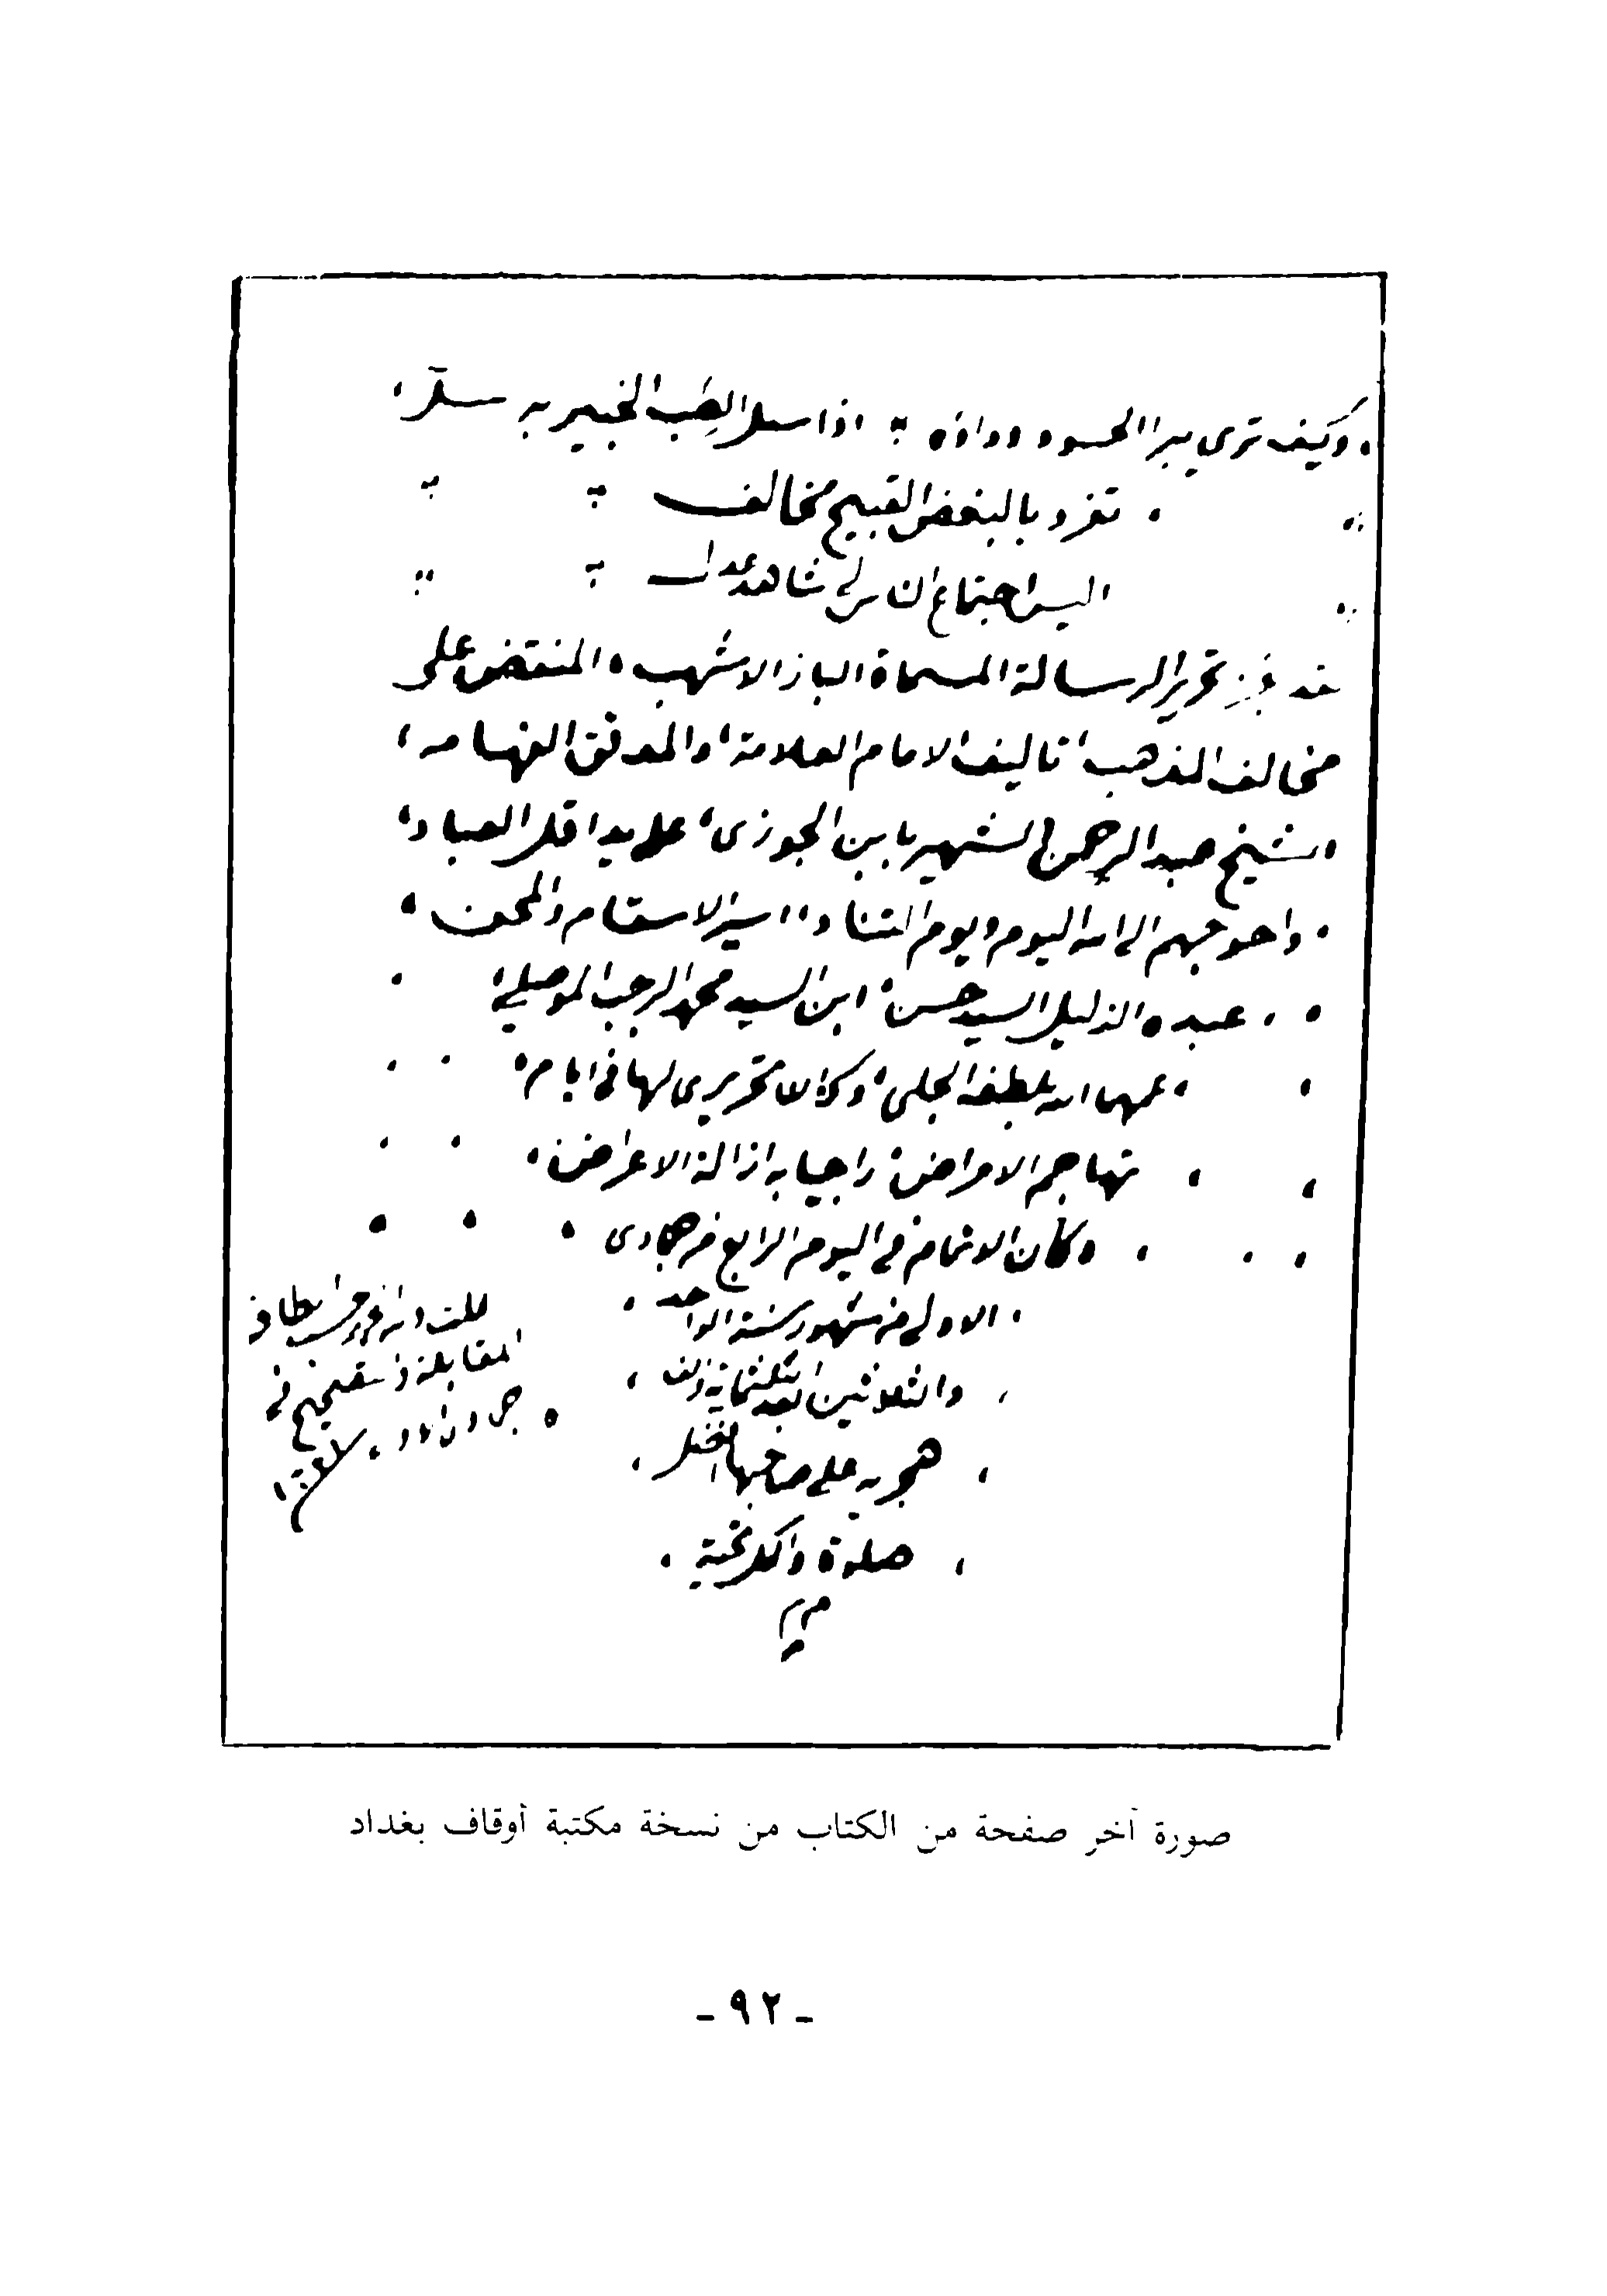 وكيف ترى يبرا الحسود وداؤه اذا سئل الطب الخبير به سلا
تفرد بالبغض القبيح مخالف
اليس اجتماع الناس لي شاهد عدل
قد نجز تحرير الرسالة المسماة الباز الاشهب، المنقض على
مخالف المذهب، تاليف الامام العلامة، والمدقق الفهامه،
الشيخ عبد الرحمن الشهير بابن الجوزى، على يد اقل العباد،
واحوجهم الى الله اليوم ويوم التناد، اسير الاسقام والمحن،
عبده الذليل السيد حسن، ابن السيد محمد الرجب الموصلي،
عمهما الله بلطفه الجلي، وكان تحريرى لها في ايام،
تهاجم الامراض، راجيا به ازالة الاعراض،
وكان الاتمام في اليوم الرابع من جمادى
الاولى من شهور سنة الواحد
والثلاثين بعد الثلثماية والف
هجرية على صاحبها افضل
صلوة واكمل تحية
المقابلة والتصحيح في
صورة آخر صفحة من الكتاب من نسخة مكتبة أوقاف بغداد
- ٩٢ -